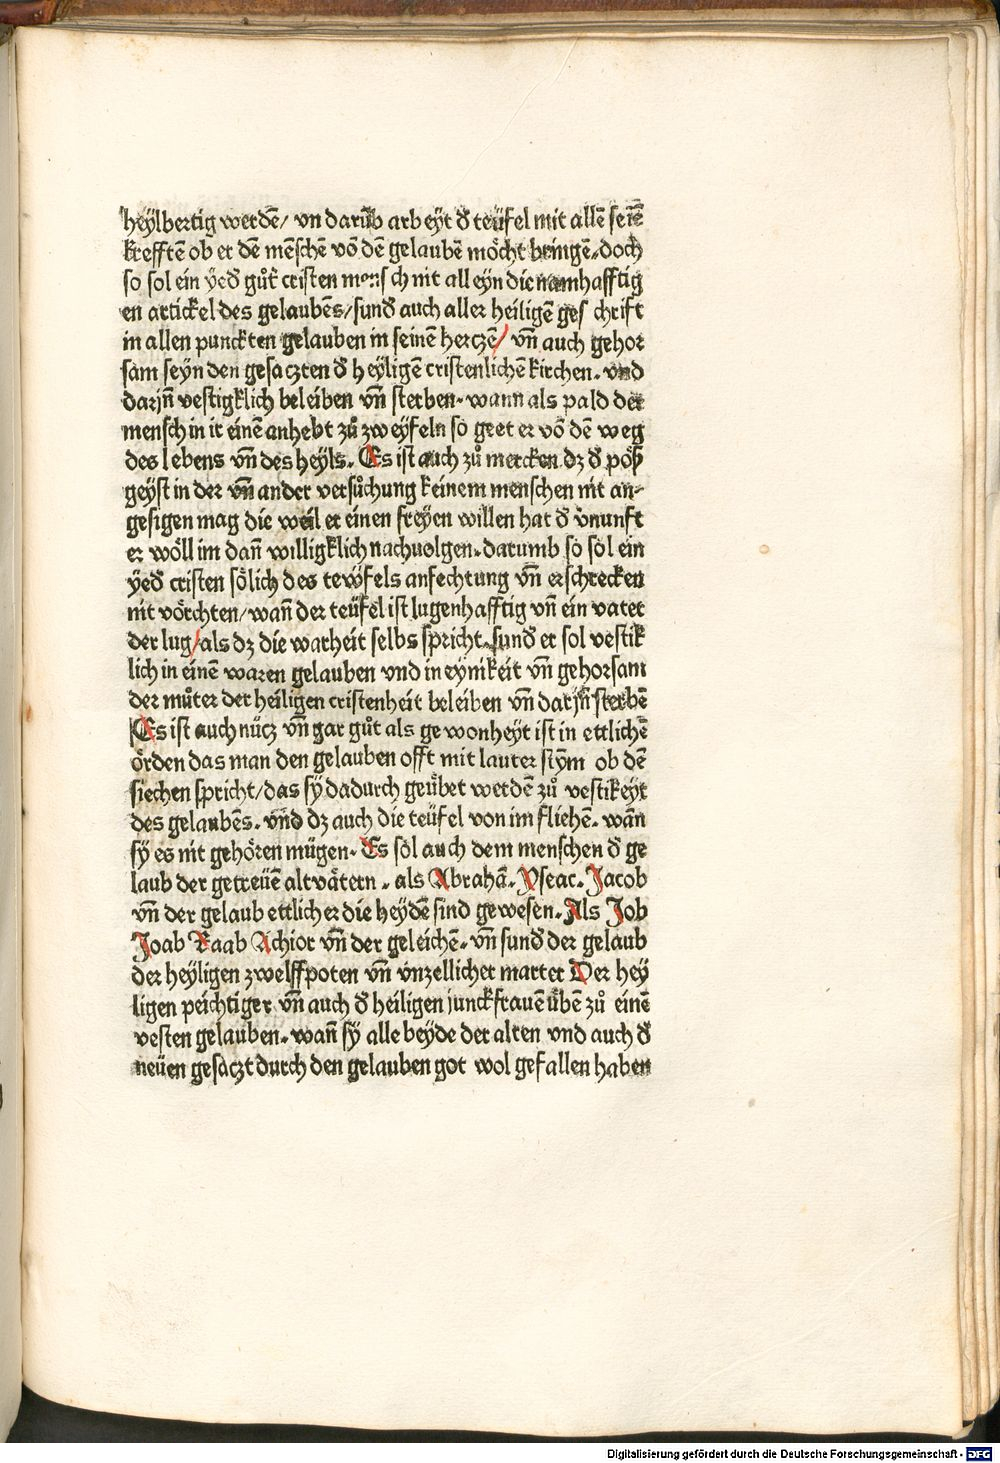 heÿlbertig werdē/ vn darūb arbeÿt đ teüfel mit allē seinē
krefftē ob er dē mēschē vō dē gelaubē möcht bringē. doch
so sol ein ÿeđ gůt̄ cristen mensch nit alleyn die namhafftig
en artickel des gelaubēs/ sunđ auch aller heiligē geschrift
in allen punckten gelauben in seinē herczē/ vn̄ auch gehor
sam seÿn den gesaczten đ heÿligē cristenlichē kirchen. vnd
darjn̄ vestigklich beleiben vn̄ sterben. wann als pald der
mensch in ir einē anhebt zů zweÿfeln so geet er vō dē weg
des lebens vn̄ des heÿls. Es ist auch zů mercken dz đ pöß
geÿst in der vn̄ ander versůchung keinem menschen nit an-
gesigen mag die weil er einen freÿen willen hat đ v̄nunft
er wöll im dan̄ willigklich nachuolgen. darumb so sol ein
ÿeđ cristen sölich des tewfels anfechtung vn̄ erschrecken
nit vörchten/ wan̄ der teüfel ist lugenhafftig vn̄ ein vater
der lug/ als dz die warheit selbs spricht. sunđ er sol vestik
lich in einē waren gelauben vnd in eynikeit vn̄ gehorsam
der můter der heiligen cristenheit beleiben vn̄ darjn̄ sterbē
Es ist auch nücz vn̄ gar gůt als gewonheÿt ist in ettlichē
örden das man den gelauben offt mit lauter stym̄ ob dē
siechen spricht/ das sÿ dadurch geübet werdē zů vestikeÿt
des gelaubēs. vn̄d dz auch die teüfel von im fliehē. wān
sÿ es nit gehören mügen. Es sol auch dem menschen đ ge
laub der getreüē altvätern. als Abrahā. Yseac. Jacob
vn̄ der gelaub ettlicher die heÿdē sind gewesen. Als Job
Joab Raab Achior vn̄ der geleichē. vn̄ sunđ der gelaub
der heÿligen zwelffpoten vn̄ vnzellicher marter Der heÿ
ligen peichtiger vn̄ auch đ heiligen junckfrauē übē zů einē
vesten gelauben. wan̄ sÿ alle beyde der alten vnd auch đ
neüen gesaczt durch den gelauben got wol gefallen haben
Digitalisierung gefördert durch die Deutsche Forschungsgemeinschaft - DFG